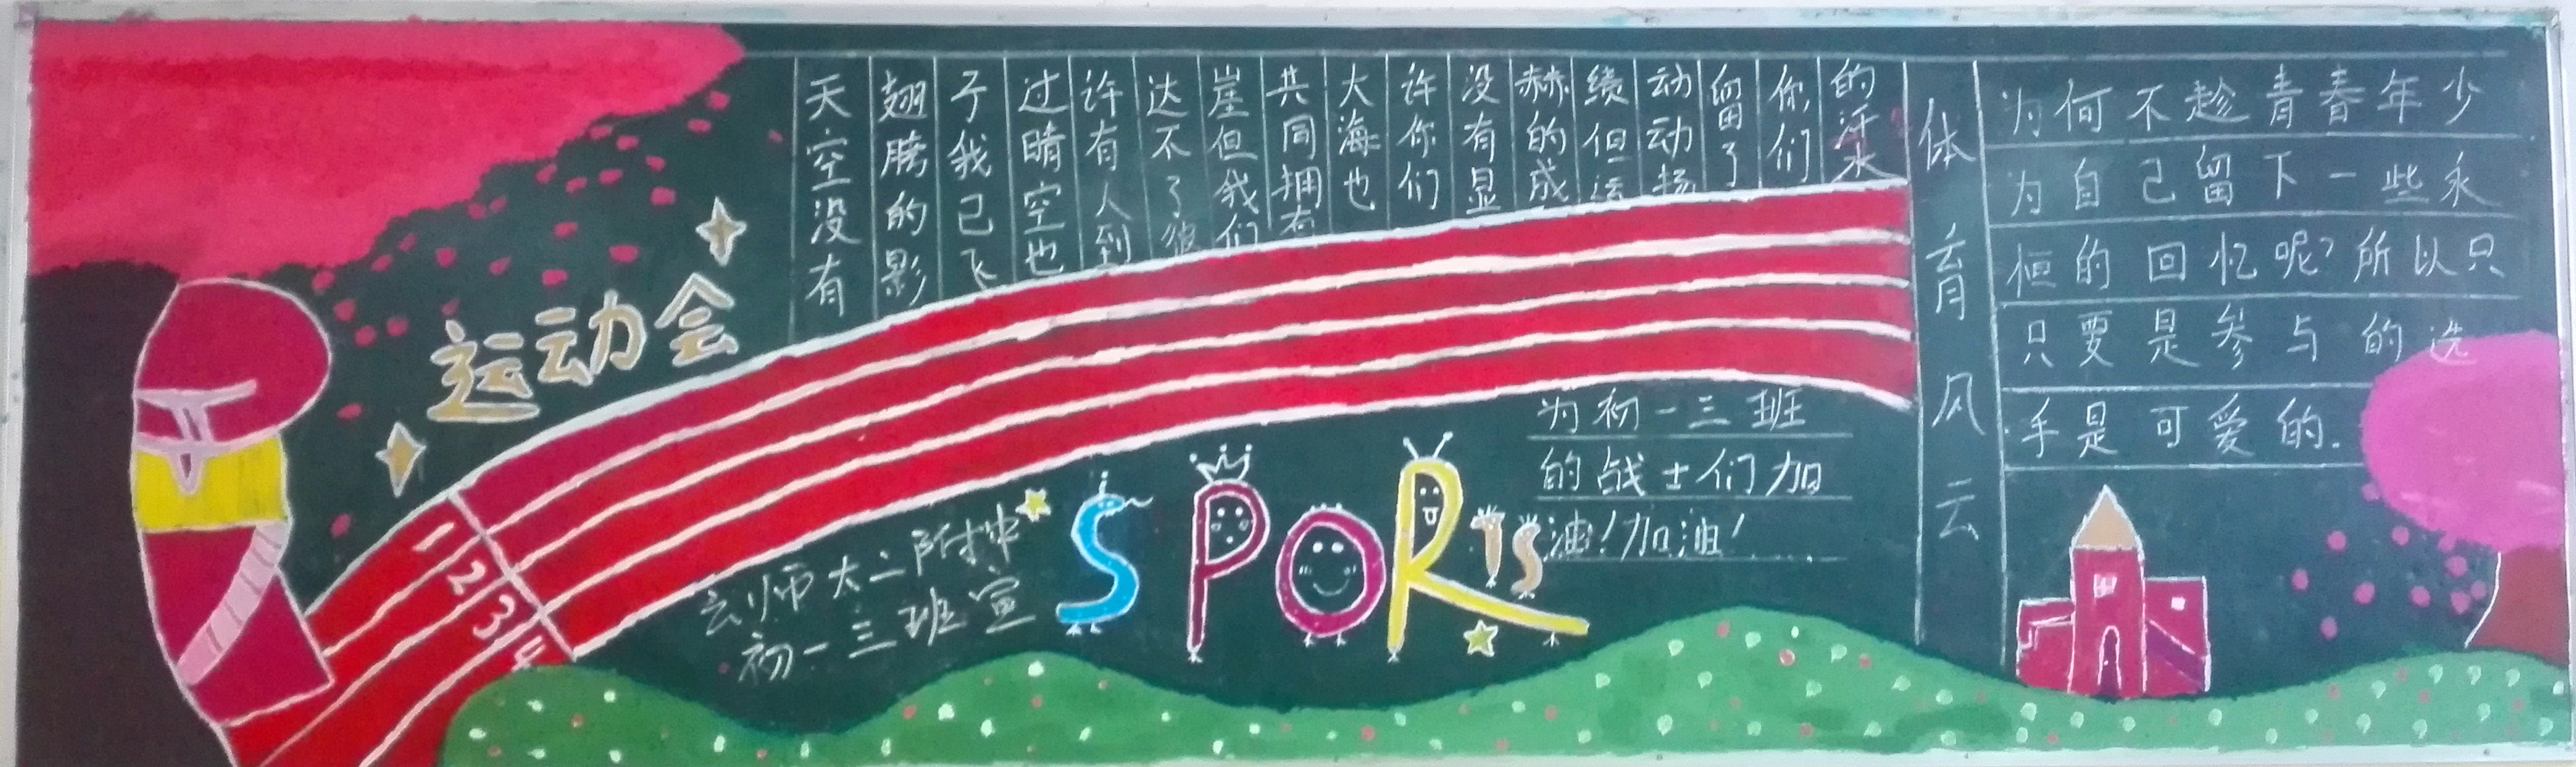 运动会
天空没有
翅膀的影
子我已飞
过晴空也
许有人到
达不了彼
崖但我们
共同拥有
大海也
许你们
没有显
赫的成
绩但运
动动扬
留了
你们
的汗水
体育风云
为何不趁青春年少
为自己留下一些永
恒的回忆呢?所以只
只要是参与的选
手是可爱的.
1
2
3
4
云师大二附中
初一三班宣
SPORTS
为初一三班
的战士们加
油!加油!